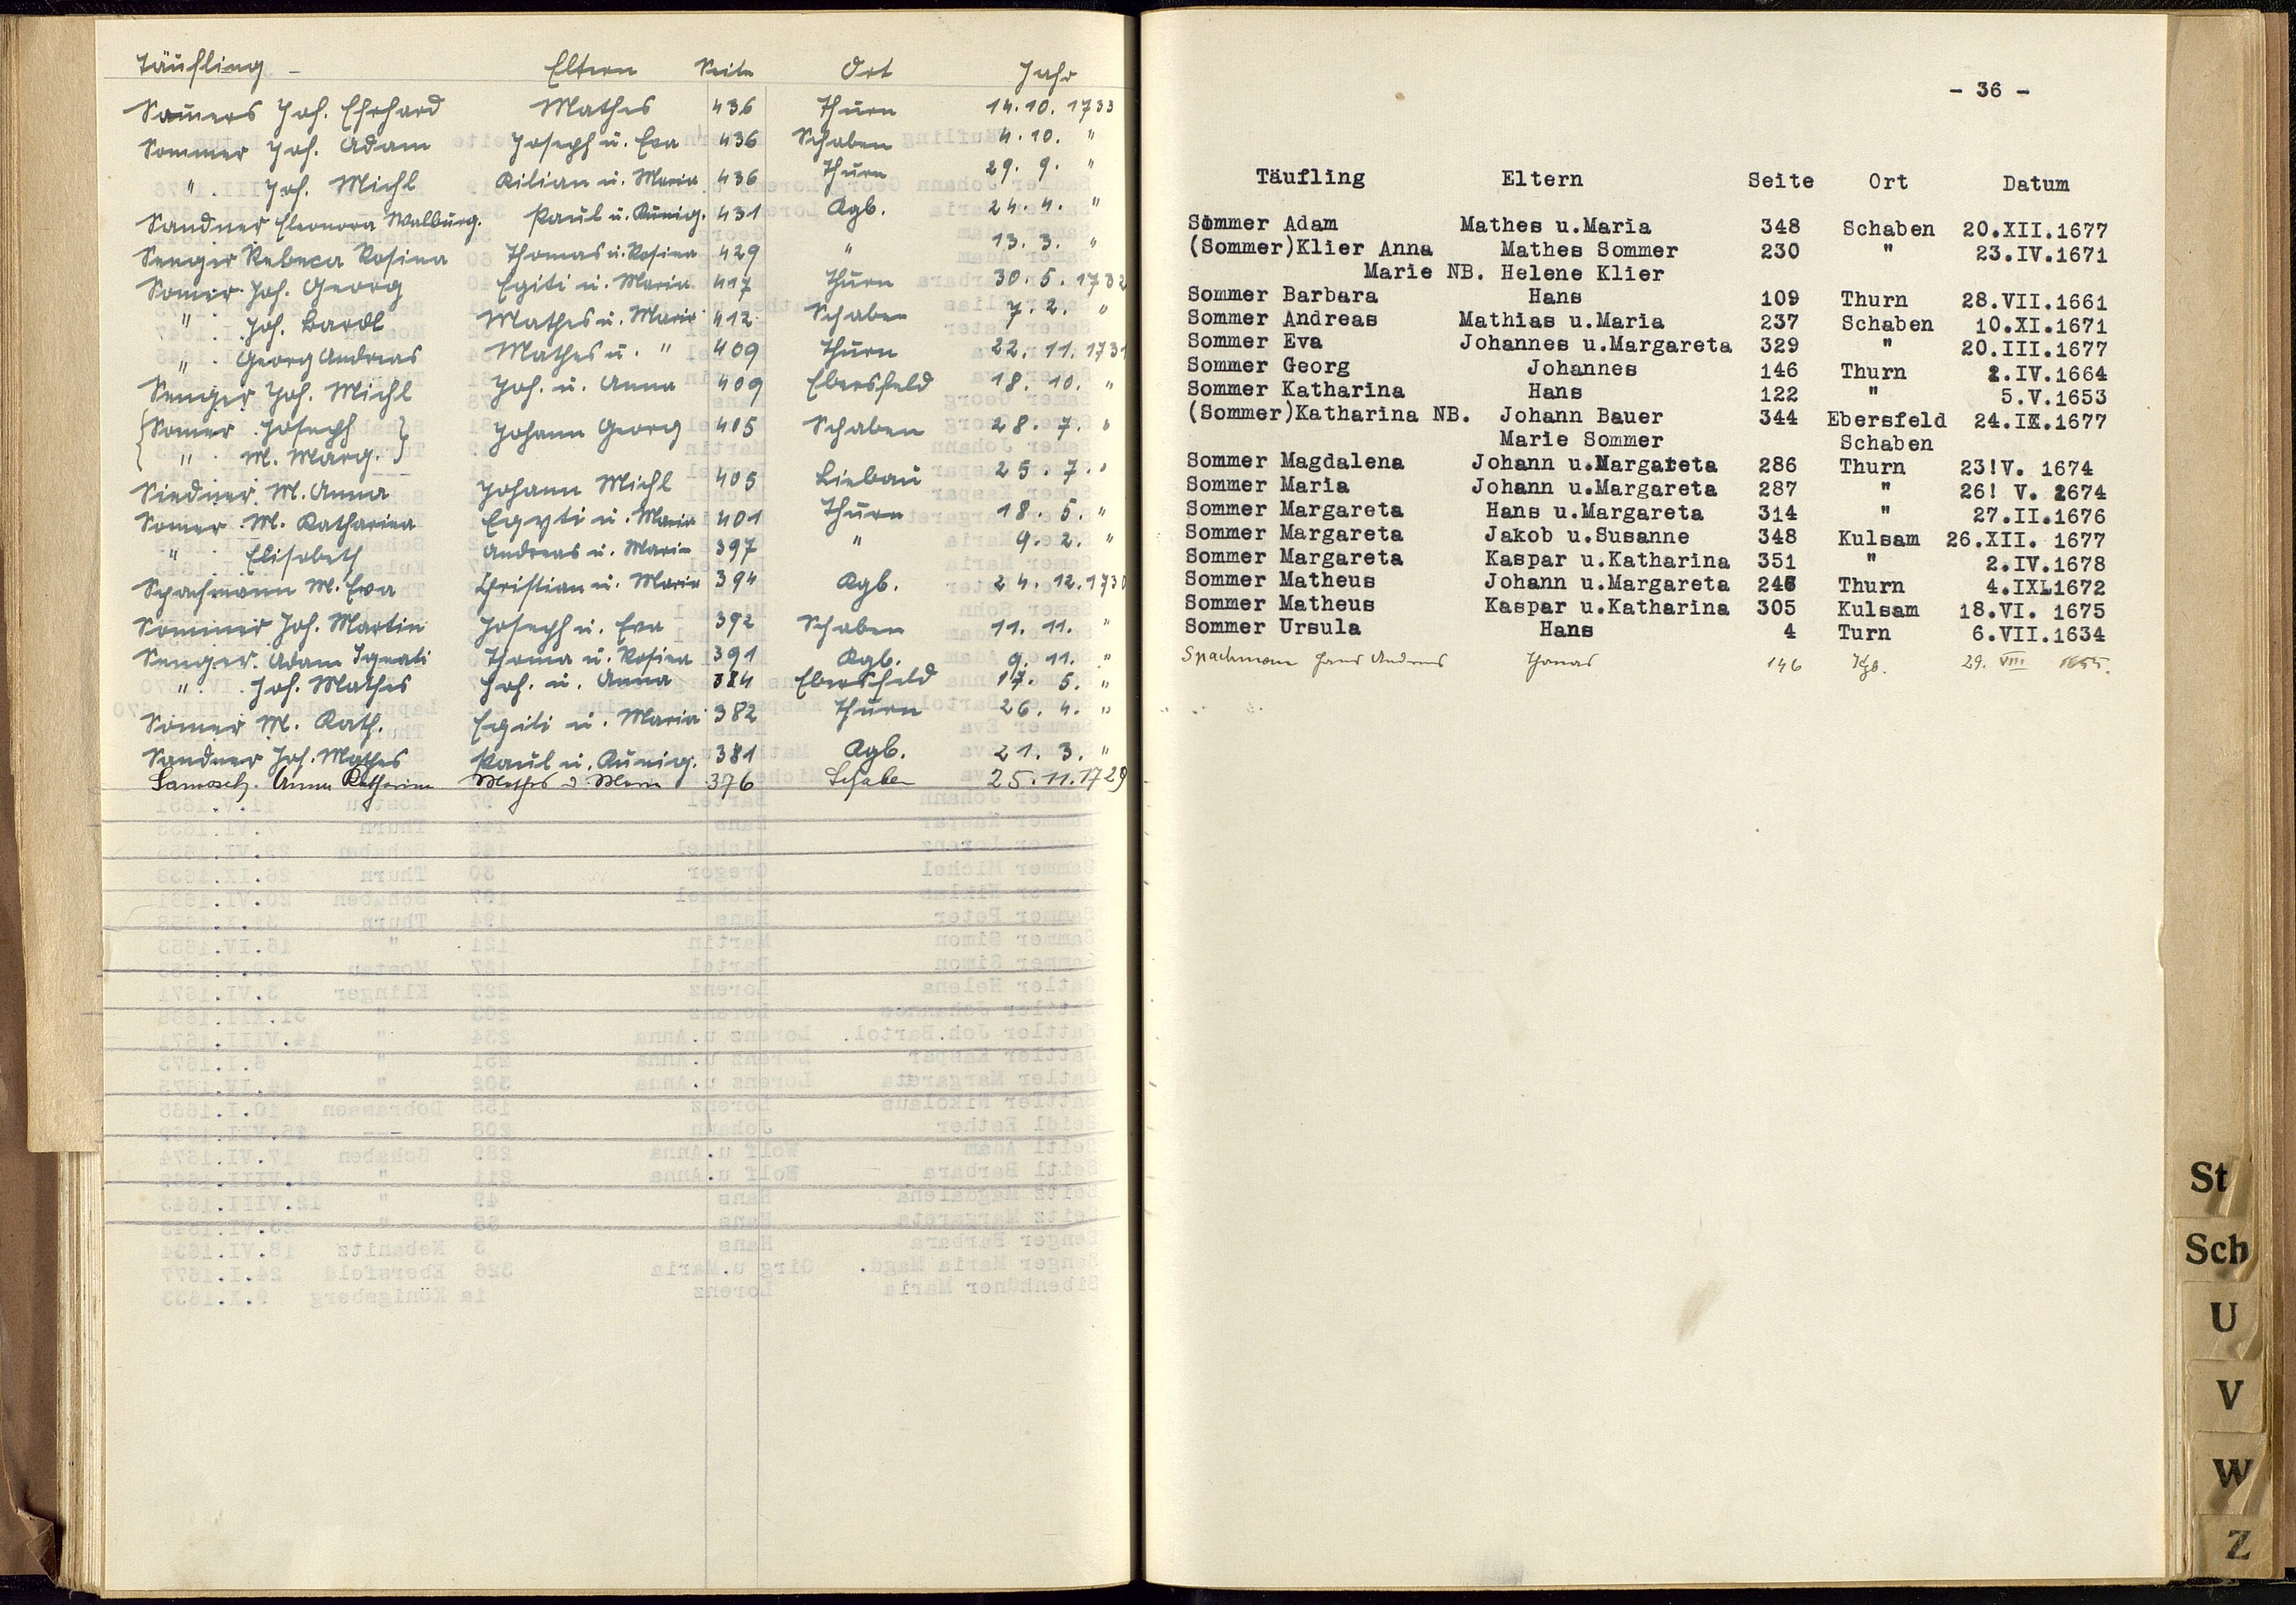 Täufling – Eltern Seite Ort Jahr
Sauers Joh. Ehrhard Mathes 436 Thurn 14.10.1733
Sommer Joh. Adam Joseph u. Eva 436 Schaben 4.10. "
" Joh. Michl Kilian u. Maria 436 Thurn 29. 9. "
Sandner Eleonora Walburg. Paul u. Kunig. 431 Kgb. 24. 4. "
Senger Rebeca Rosina Thomas u. Rosina 429 " 13. 3. "
Somer Joh. Georg Egiti u. Maria 417 Thurn 30. 5. 1732
" Joh. Bardl Mathes u. Maria 412 Schaben 7. 2. "
" Georg Andreas Mathes u. " 409 Thurn 22. 11. 1731
Senger Joh. Michl Joh. u. Anna 409 Ebersfeld 18. 10. "
{Somer Joseph } Johann Georg 405 Schaben 28. 7. "
{ " M. Marg. }
Siedner M. Anna Johann Michl 405 Liebau 25. 7. "
Somer M. Katharina Egyti u. Maria 401 Thurn 18. 5. "
" Elisabeth Andreas u. Maria 397 " 9. 2. "
Spachmann M. Eva Christian u. Maria 394 Kgb. 24. 12. 1730
Sommer Joh. Martin Joseph u. Eva 392 Schaben 11. 11. "
Senger. Adam Ignati Thoma u. Rosina 391 Kgb. 9. 11. "
" Joh. Mathes Joh. u. Anna 384 Ebersfeld 17. 5. "
Somer M. Kath. Egiti u. Maria 382 Thurn 26. 4. "
Sandner Joh. Mathes Paul u. Kunig. 381 Kgb. 21. 3. "
Anna Katharina Mathes 376 Schaben 25. 11. 1729
- 36 -
Täufling Eltern Seite Ort Datum
Sommer Adam Mathes u.Maria 348 Schaben 20.XII.1677
(Sommer)Klier Anna Mathes Sommer 230 " 23.IV.1671
Marie NB. Helene Klier
Sommer Barbara Hans 109 Thurn 28.VII.1661
Sommer Andreas Mathias u.Maria 237 Schaben 10.XI.1671
Sommer Eva Johannes u.Margareta 329 " 20.III.1677
Sommer Georg Johannes 146 Thurn 2.IV.1664
Sommer Katharina Hans 122 " 5.V.1653
(Sommer)Katharina NB. Johann Bauer 344 Ebersfeld 24.IX.1677
Marie Sommer Schaben
Sommer Magdalena Johann u.Margareta 286 Thurn 23!V. 1674
Sommer Maria Johann u.Margareta 287 " 26! V. 2674
Sommer Margareta Hans u.Margareta 314 " 27.II.1676
Sommer Margareta Jakob u.Susanne 348 Kulsam 26.XII. 1677
Sommer Margareta Kaspar u.Katharina 351 " 2.IV.1678
Sommer Matheus Johann u.Margareta 246 Thurn 4.IXI1672
Sommer Matheus Kaspar u.Katharina 305 Kulsam 18.VI. 1675
Sommer Ursula Hans 4 Turn 6.VII.1634
Spachmann Hans Andreas Thomas 146 Kgb. 29. VIII 1655.
St
Sch
U
V
W
Z